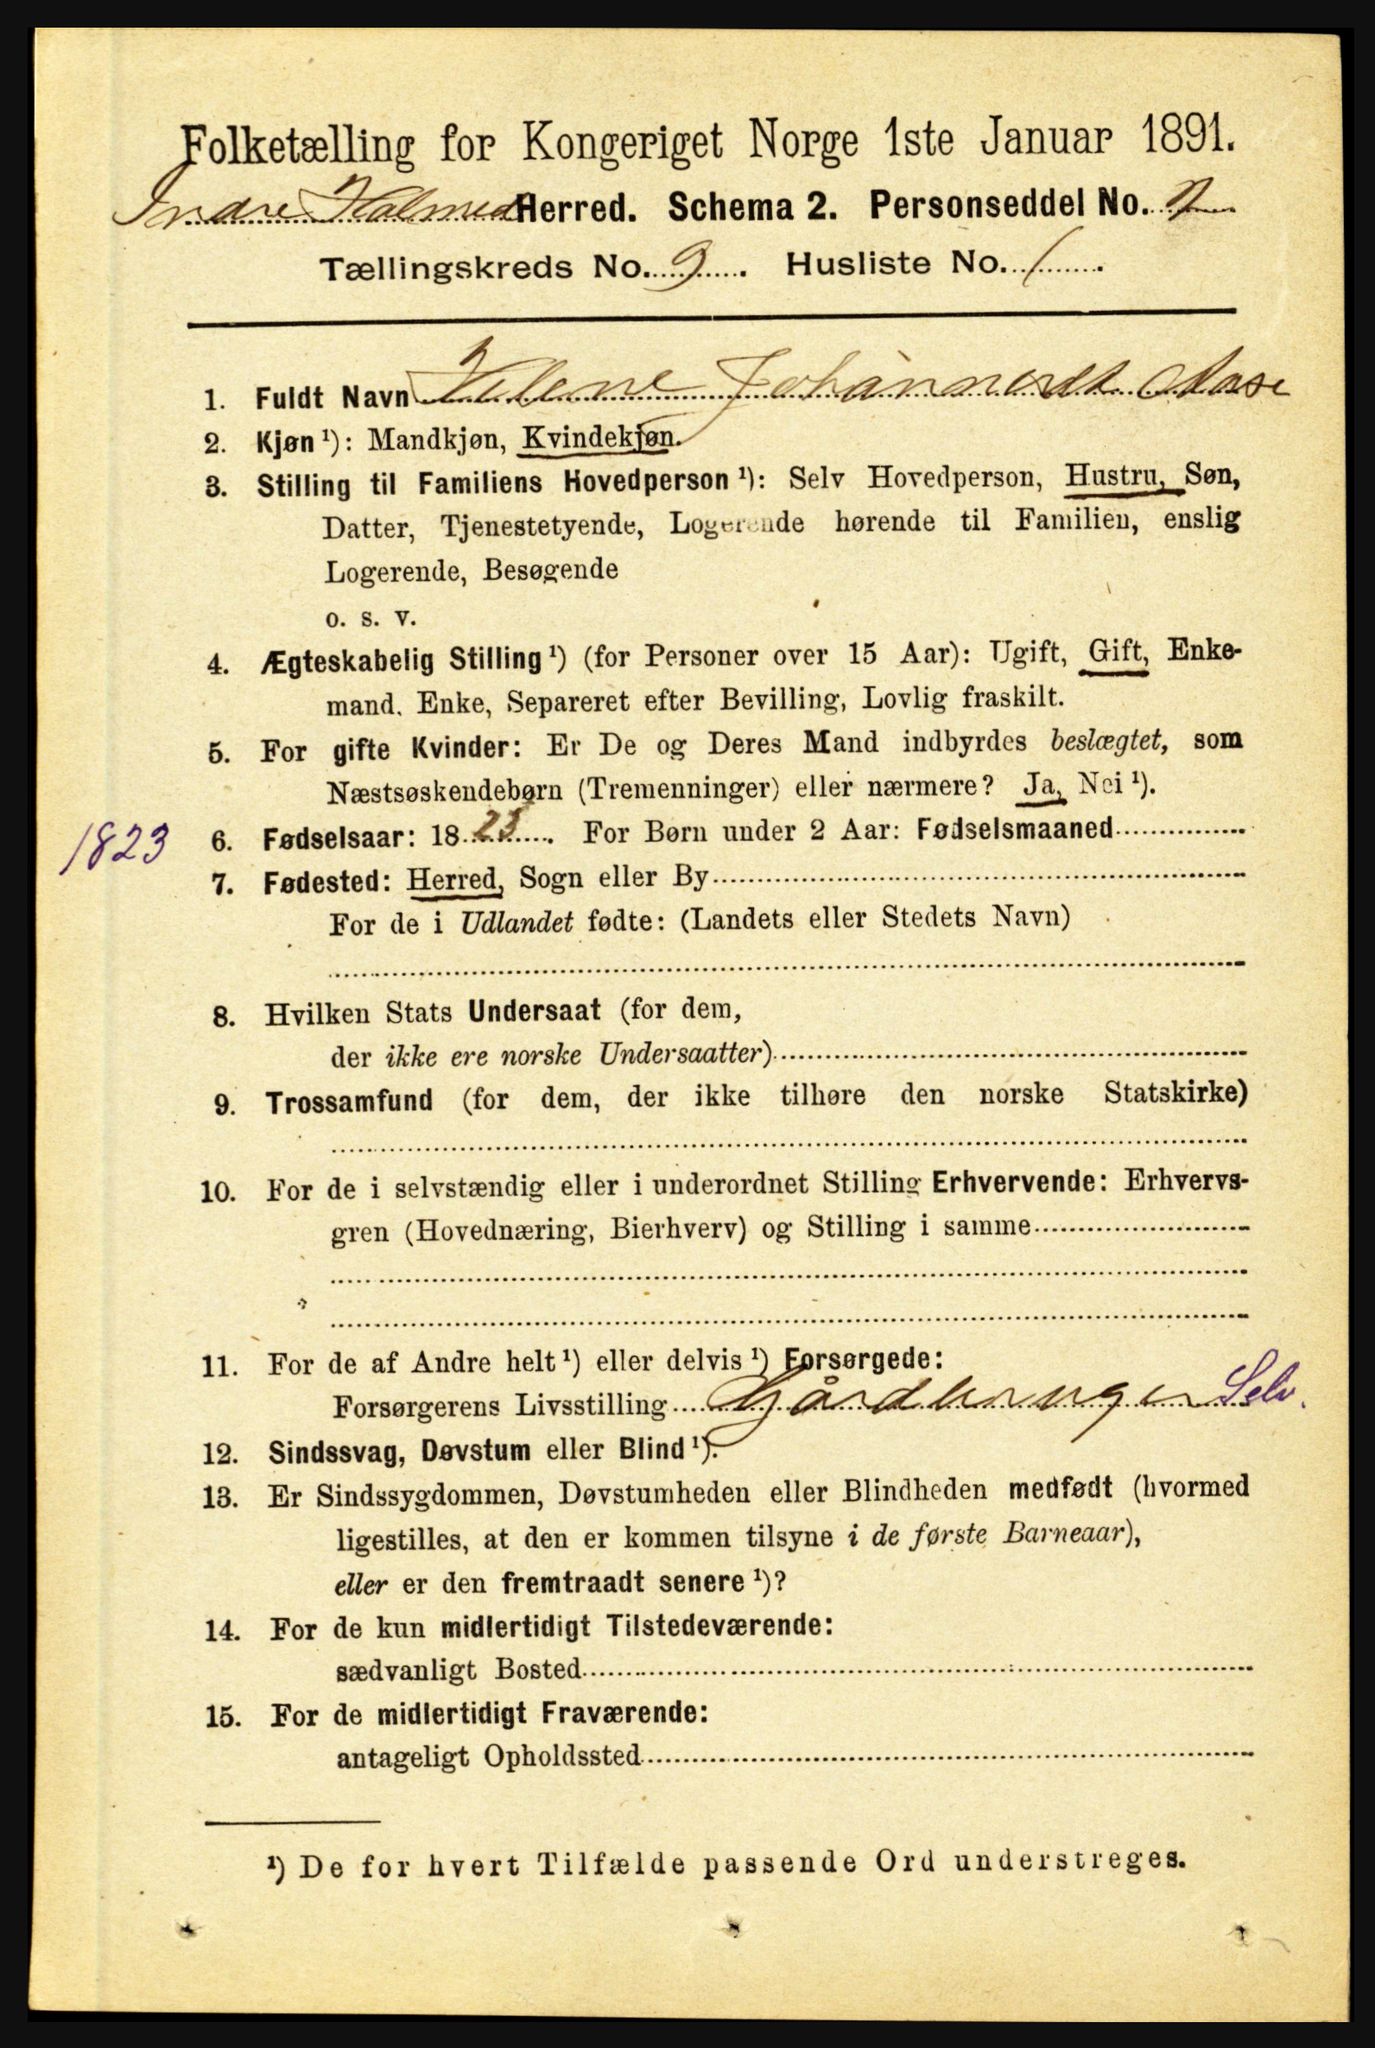 Folketælling for Kongeriget Norge 1ste Januar 1891.
Indre Holmedal Herred. Schema 2. Personseddel No. 2
Tællingskreds No. 9. Husliste No. 1.
1. Fuldt Navn Helene Johannesdt Aase
2. Kjøn ¹): Mandkjøn, Kvindekjøn.
3. Stilling til Familiens Hovedperson ¹): Selv Hovedperson, Hustru, Søn,
Datter, Tjenestetyende, Logerende hørende til Familien, enslig
Logerende, Besøgende
o. s. v.
4. Ægteskabelig Stilling ¹) (for Personer over 15 Aar): Ugift, Gift, Enke-
mand. Enke, Separeret efter Bevilling, Lovlig fraskilt.
5. For gifte Kvinder: Er De og Deres Mand indbyrdes beslægtet, som
Næstsøskendebørn (Tremenninger) eller nærmere? Ja, Nei ¹).
1823 6. Fødselsaar: 1823. For Børn under 2 Aar: Fødselsmaaned
7. Fødested: Herred, Sogn eller By
For de i Udlandet fødte: (Landets eller Stedets Navn)
8. Hvilken Stats Undersaat (for dem,
der ikke ere norske Undersaatter)
9. Trossamfund (for dem, der ikke tilhøre den norske Statskirke)
10. For de i selvstændig eller i underordnet Stilling Erhvervende: Erhvervs-
gren (Hovednæring, Bierhverv) og Stilling i samme
11. For de af Andre helt ¹) eller delvis ¹) Forsørgede:
Forsørgerens Livsstilling Gårdbruger Selv.
12. Sindssvag, Døvstum eller Blind ¹).
13. Er Sindssygdommen, Døvstumheden eller Blindheden medfødt (hvormed
ligestilles, at den er kommen tilsyne i de første Barneaar),
eller er den fremtraadt senere ¹)?
14. For de kun midlertidigt Tilstedeværende:
sædvanligt Bosted
15. For de midlertidigt Fraværende:
antageligt Opholdssted
¹) De for hvert Tilfælde passende Ord understreges.